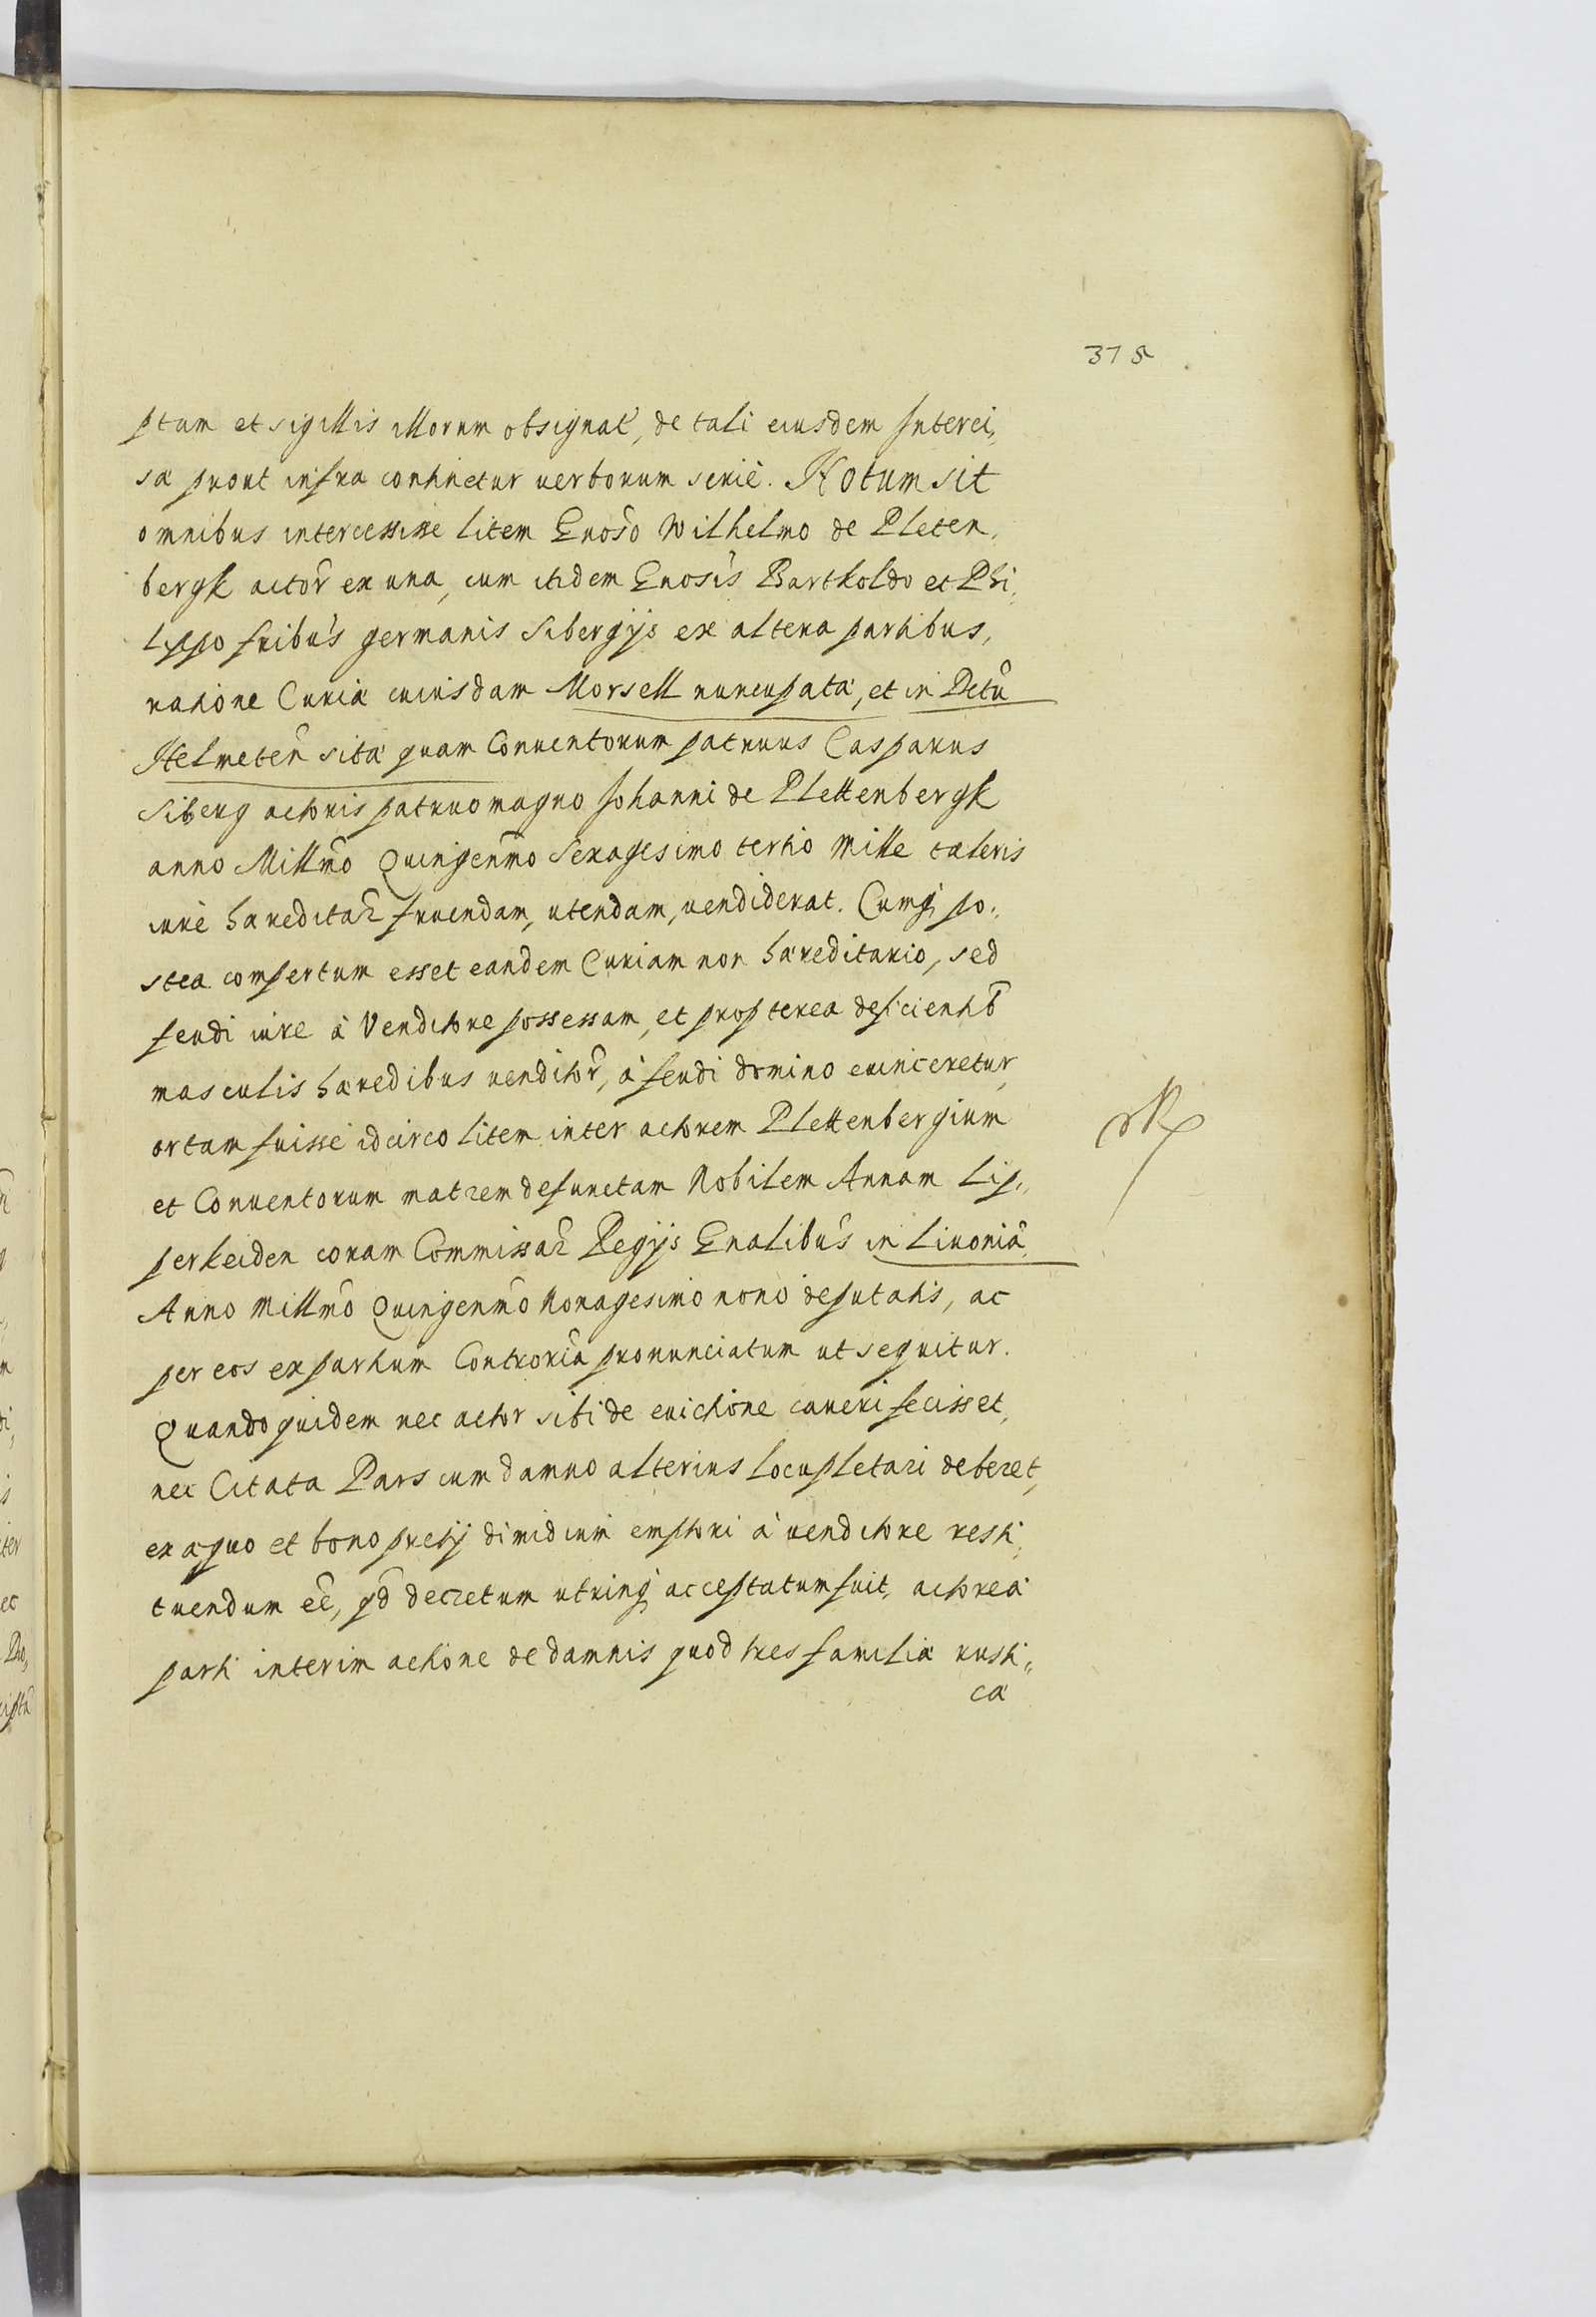 315
ptam et sigillis illorum obsignat, de tali eiusdem Interci,,
sæ prout infra continetur verborum serie. Notum sit
omnibus intercessisse litem Gnoso Wilhelmo de Pleten,,
bergk actor ex una, cum itidem Gnosis Bartholdo et Phi,,
lippo fribus germanis Sibergijs ex altera partibus,
ratione Curiæ cuiusdam Morsell nuncupatæ, et in Dctu
Helmeten sitæ quam Conventorum patruus Casparus
Siberg actoris patruo magno Johanni de Plettenbergk
anno Millmo Quingenmo Sexagesimo tertio Mille taleris
iure hæreditar fruendam, utendam, vendiderat. Cumq po,,
stea compertum esset eandem Curiam non hæreditario, sed
feudi iure à Venditore possessam, et propterea deficientib
masculis hæredibus venditor, à feudi domino evinceretur,
ortam fuisse idcirco litem inter actorem Plettenbergium
et Conventorum matrem defunctam Nobilem Annam Lip,,
perheiden coram Commissar Regijs Gnalibus in Livonia
Anno Millmo Quingenmo Nonagesimo nono deputatis, ac
per eos ex partium Controria pronunciatum ut sequitur.
Quandoquidem nec actor sibi de evictione caveri fecisset,
nec Citata Pars cum damno alterius locupletari deberet,
ex æquo et bono pretij dimidium emptori à venditore resti,,
tuendum eē, qd decretum utrinq acceptatum fuit, actoreæ
parti interim actione de damnis quod tres familiæ rusti,,
cæ